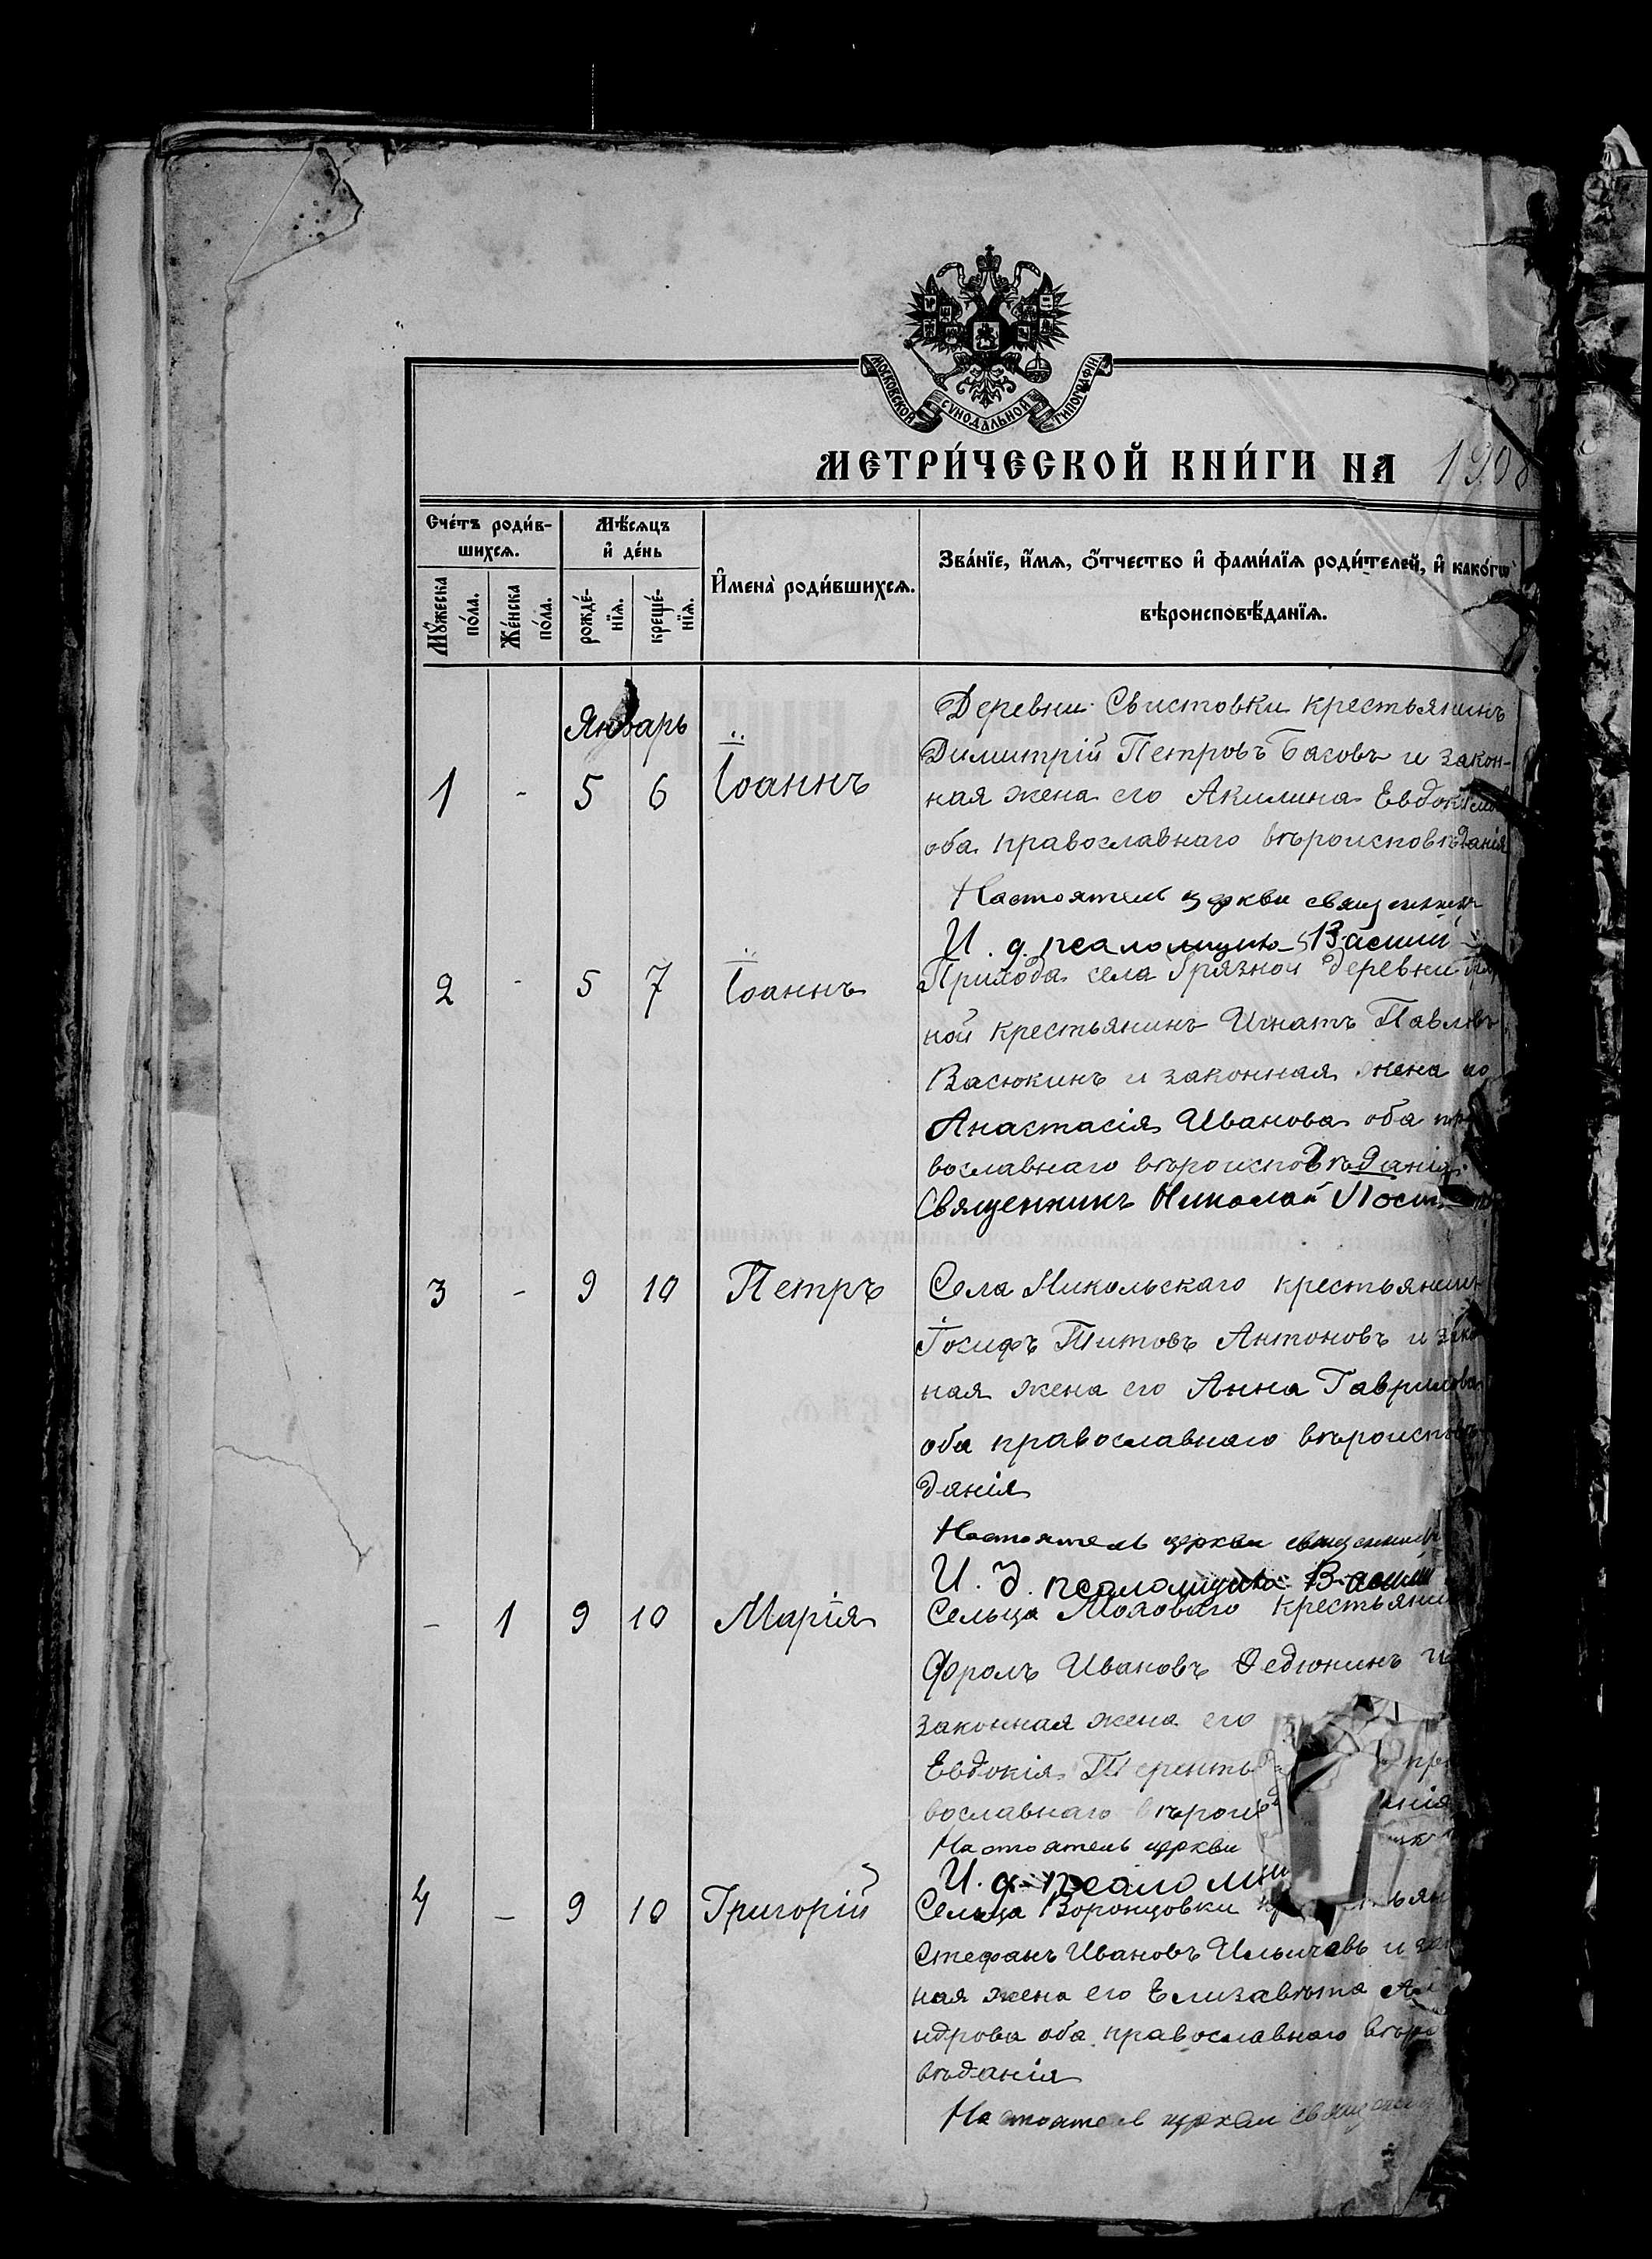 МОСКОВСКОЙ СѴНОДАЛЬНОЙ ТИПОГРАФІИ
МЕТРИ́ЧЕСКОЙ КНИ́ГИ НА 1908
Сче́тъ роди́в-
шихсѧ.
Мꙋ́жеска
по́ла.
Же́нска
по́ла.
Мѣ́сѧцъ
и҆ де́нь
рожде́-
нїѧ.
креще́-
нїѧ.
И҆мена̀ роди́вшихсѧ.
Зва́нїе, и҆́мѧ, ѻ҆́тчество и҆ фами́лїѧ роди́телей, и҆ како́гѡ
вѣроисповѣ́данїѧ.
Январь
1 - 5 6 Іоаннъ
Деревни Свистовки крестьянинъ
Димитрій Петровъ Басовъ и закон-
ная жена его Акилина Евдоким
оба православнаго вѣроисповѣданія
Настоятель церкви священникъ
И. д. псаломщика Василій
2 - 5 7 Іоаннъ
Прихода села Грязной деревни
ной крестьянинъ Игнатъ Павловъ
Васюкинъ и законная жена
Анастасія Иванова оба пра
вославнаго вѣроисповѣданія.
Священникъ Николай
3 - 9 10 Петръ
Села Никольскаго крестьянинъ
Іосифъ Титовъ Антоновъ и зако
ная жена его Анна Гаврилова
оба православнаго вѣроисповѣ
данія
Настоятель церкви священникъ
И. д. псаломщика Василій
- 1 9 10 Марія
Сельца Моховаго крестьянин
Фролъ Ивановъ Федюнинъ и
законная жена его
Евдокія Теренть пра
вославнаго вѣроис анія
Настоятель церкви
И. д. псаломщи
4 - 9 10 Григорій
Сельца Воронцовки кр тьян
Стефанъ Ивановъ Ильичевъ и зак
ная жена его Елизавѣта Ал
ндрова оба православнаго вѣро
вѣданія
Настоятель церкви священ